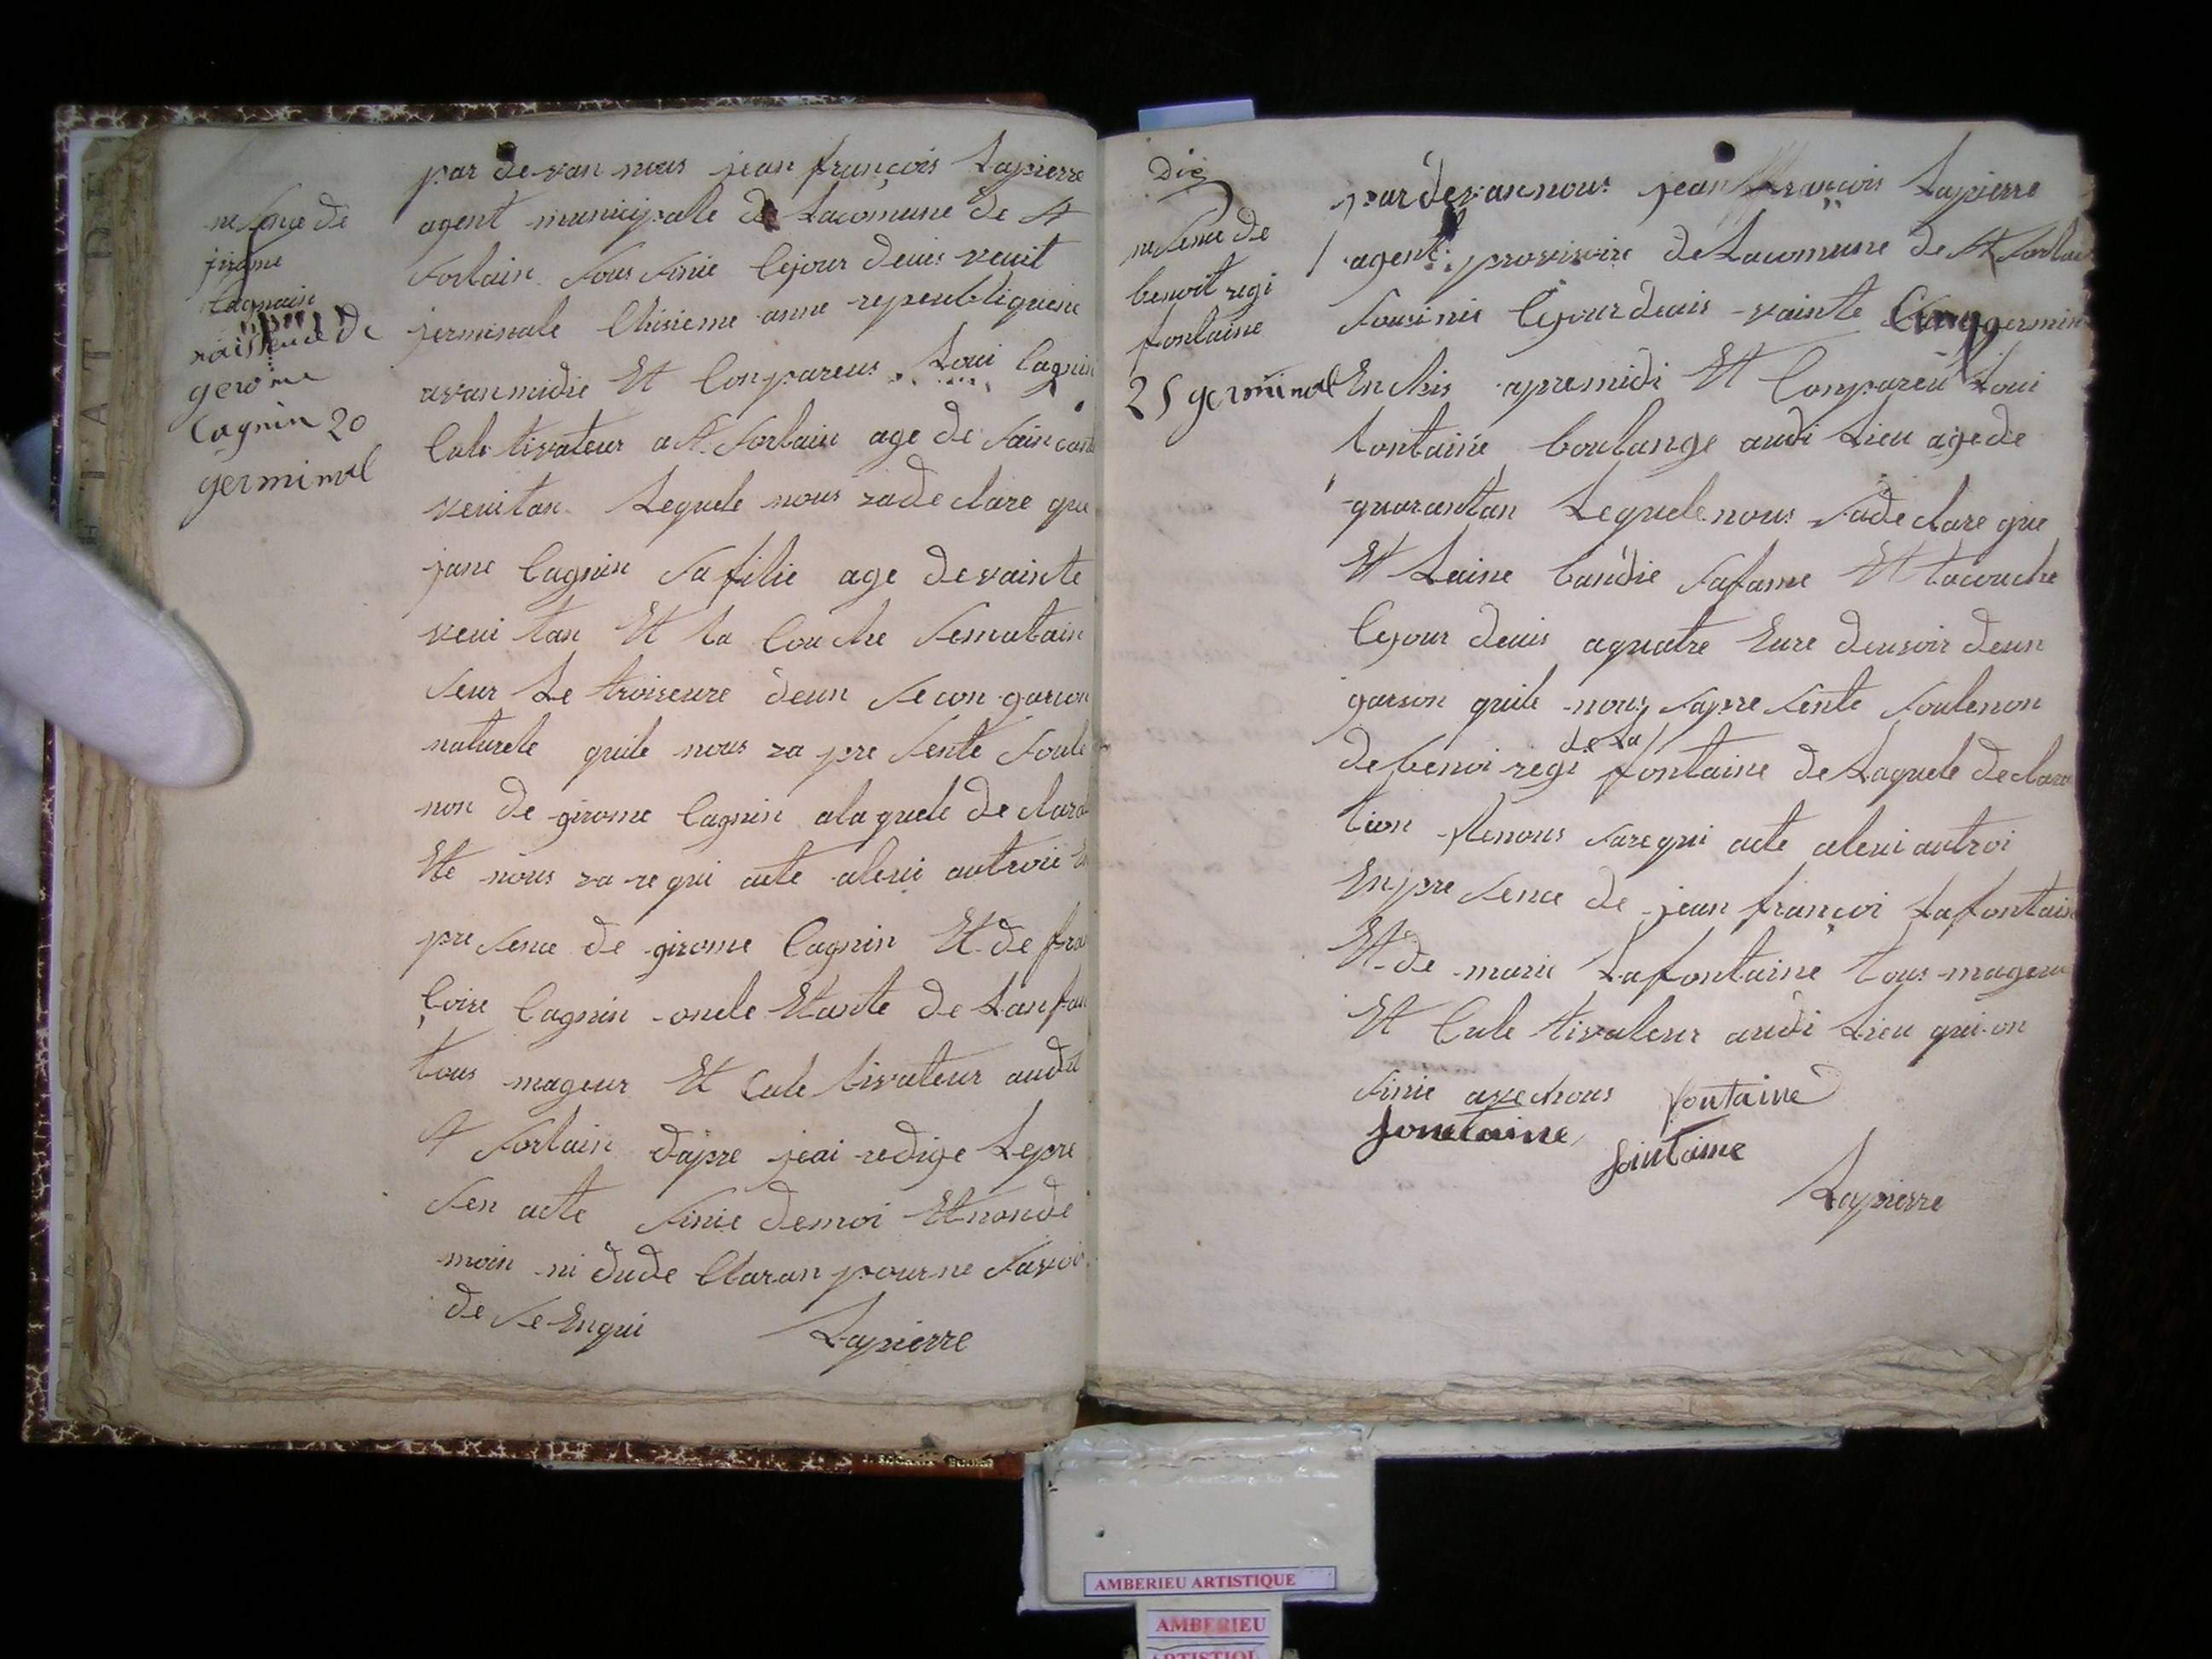 nesence de
jirome
Cagnain
naissence de
gerome
Cagnin 20
germinal
par devan nous jean françois Lapierre
agent municipalle de Lacomune de St
Sorlain Sous Sinie Cejour deuis veuit
jerminale Chisieme anne repeubliquene
avanmidie Et Conpareus Loui Cagnin
Cule tivateur a St Sorlain age de Sain cante
veuitan Lequele nous za de clare que
jane Cagnin Sa filie age devainte
veui tan Et ta Couche Sematain
Seur Le troiseure deun Secon garcon
naturele quile nous za pre Sente Soule
non de girome Cagnin alaquele de clara
Ete nous za re qui acte aleui autroie En
pre Sence de girome Cagnin Et de fran
çoise Cagnin oncle Etante de Lanfan
tous mageur Et Cule tivateur audit
St Sorlain dapre jeai redige Lepre
Sen acte Sinie demoi Et non de
moin ni dude Claran pour ne Savoir
de Se Enqui
Lapierre
Die
nesence de
benoit regi
fontaine
25 germinal
pardevan nous jean françois Lapierre
agent provisoire de Lacomune de St Sorlain
Sousinie Cejour deuis vainte Cinq germin
En Chis apremidi Et Conpareu Loui
fontaine boulange audi Lieu age de
quarantan Lequele nous Sade clare que
Et Laine baudie Safame Et tacouche
Cejour deuis aquatre Eure deusoir deun
garson quile nous Sapre Sente Soulenon
de benoi regi de La fontaine de Laquele declara
tion Ilenous Sarequi acte aleui autroi
Enpre Sence de jean françoi Lafontaine
Et de marie Lafontaine tous mageur
Et Cule tivateur audi Lieu qui on
Sinie avechous fontaine
fontaine
fointaine
Lapierre
AMBERIEU ARTISTIQUE
AMBERIEU